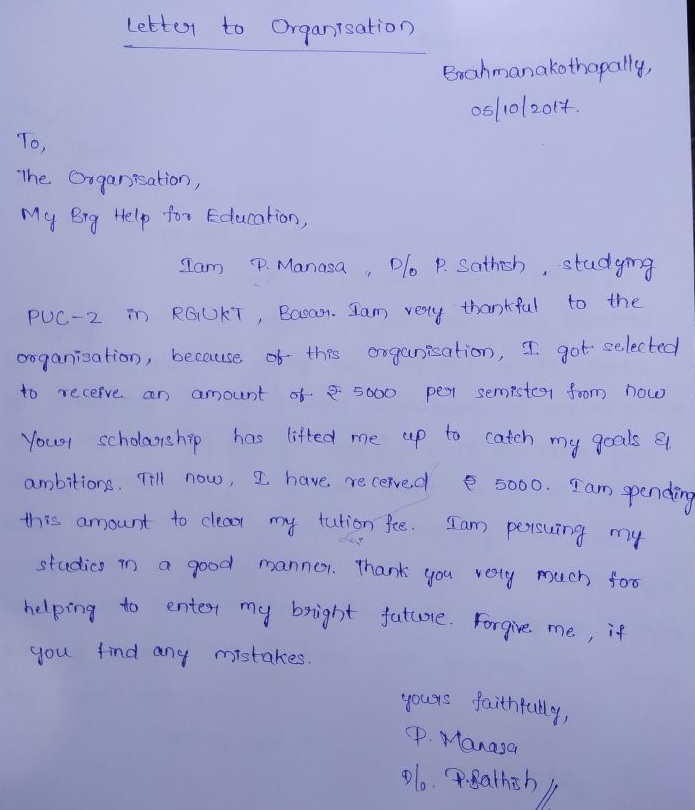 Letter to Organisation
Brahmanakothapally,
05/10/2017.
To,
The Organisation,
My Big Help for Education,
Iam P. Manasa, D/o P. Sathish, studying
PUC-2 in RGUKT, Basar. Iam very thankful to the
organisation, because of this organisation, I got selected
to receive an amount of ₹ 5000 per semister from now
Your scholarship has lifted me up to catch my goals &
ambitions. Till now, I have received ₹ 5000. Iam spending
this amount to clear my tution fee. Iam persuing my
studies in a good manner. Thank you very much for
helping to enter my bright future. Forgive me, if
you find any mistakes.
yours faithfully,
P. Manasa
D/o. P.Sathish //